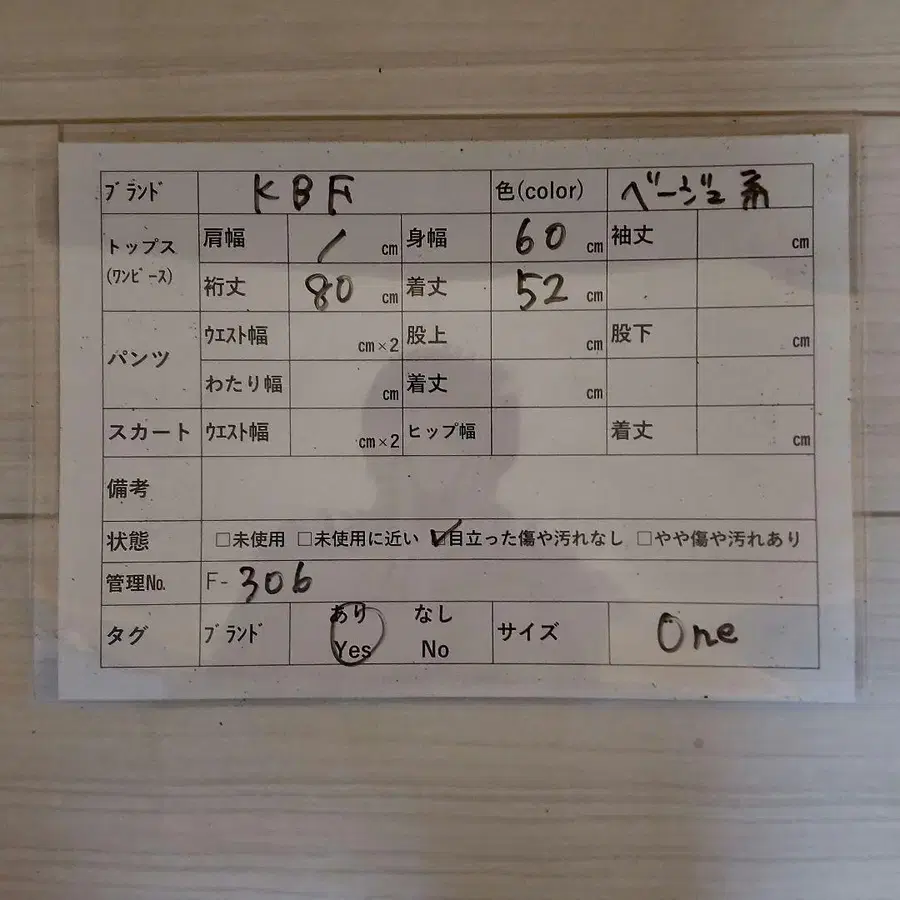 ブランド KBF 色(color) ベージュ系
トップス (ワンピース) 肩幅 / cm 身幅 60 cm 袖丈 cm
裄丈 80 cm 着丈 52 cm
パンツ ウエスト幅 cm×2 股上 cm 股下 cm
わたり幅 cm 着丈 cm
スカート ウエスト幅 cm×2 ヒップ幅 着丈 cm
備考
状態 □未使用 □未使用に近い ☑目立った傷や汚れなし □やや傷や汚れあり
管理No. F-306
タグ ブランド あり Yes なし No サイズ One